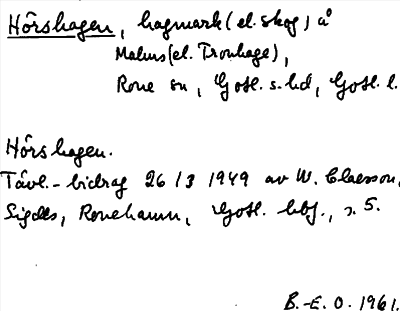 Hörshagen, hagmark (el. skog) å
Malms (el. Tronhage),
Rone sn, Gotl. s. hd, Gotl. l.
Hörshagen.
Tävl.-bidrag 26/3 1949 av W. Claesson,
Sigdes, Ronehamn, Gotl. hbf., s. 5.
B.-E. O. 1961.